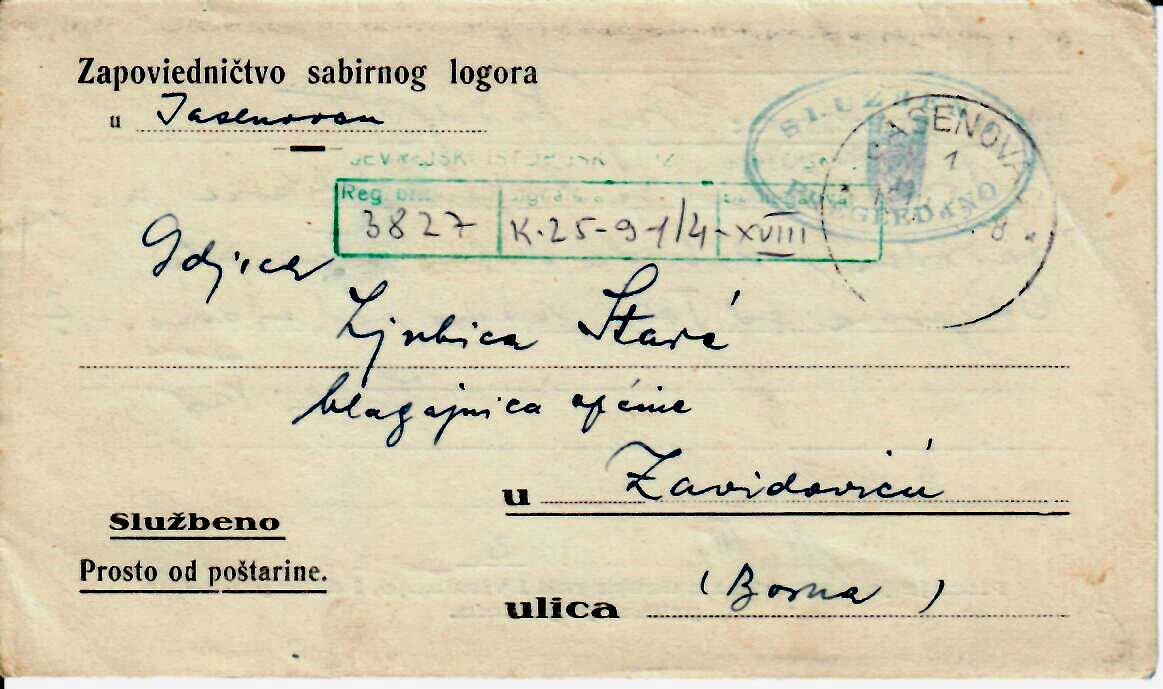 Zapovjedničtvo sabirnog logora
u Jasenovcu
Reg. 
3827 K.25-9-1/4-XVIII
SLUŽBENO
PREGLEDANO
JASENOVA
1
Gdjica
Ljubica Starć
blagajnica općine
u Zavidoviću
Službeno
Prosto od poštarine.
ulica (Bosna)